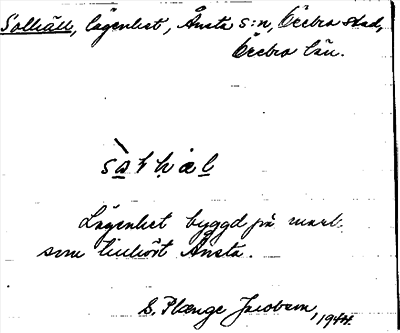 Solhäll, lägenhet, Ånsta s:n, Örebro stad,
Örebro län.
Lägenhet byggd på mark,
som tillhört Ånsta.
S. Plænge Jacobson, 1944.